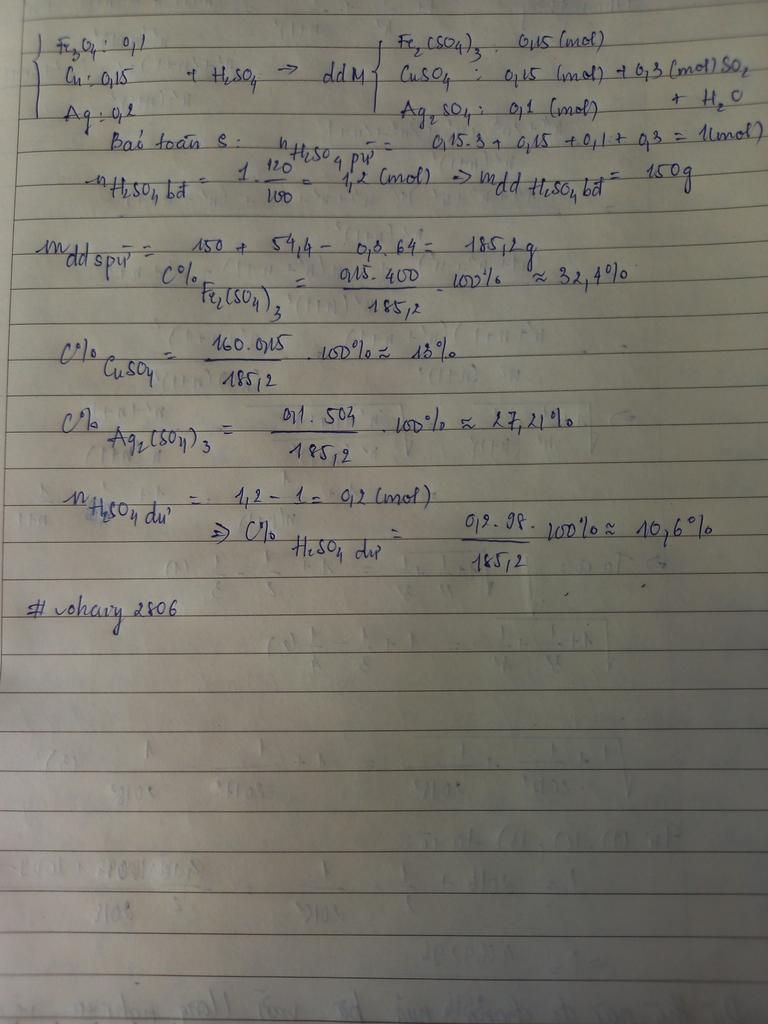 Fe3O4: 0,1 Fe2(SO4)3: 0,15 (mol)
Cu: 0,15 + H2SO4 → ddM CuSO4: 0,15 (mol) + 0,3 (mol) SO2
Ag: 0,2 Ag2SO4: 0,1 (mol) + H2O
Bảo toàn S: nH2SO4 pứ = 0,15.3 + 0,15 + 0,1 + 0,3 = 1(mol)
nH2SO4 bđ = 1. 120/100 = 1,2 (mol) => mdd H2SO4 bđ = 150g
mdd spứ = 150 + 54,4 - 0,3.64 = 185,2g
C% Fe2(SO4)3 = 0,15.400/185,2 . 100% ≈ 32,4%
C% CuSO4 = 160.0,15/185,2 . 100% ≈ 13%
C% Ag2(SO4)3 = 0,1.504/185,2 . 100% ≈ 27,21%
nH2SO4 dư = 1,2 - 1 = 0,2 (mol)
=> C% H2SO4 dư = 0,2.98./185,2 100% ≈ 10,6%
# vohavy 2806